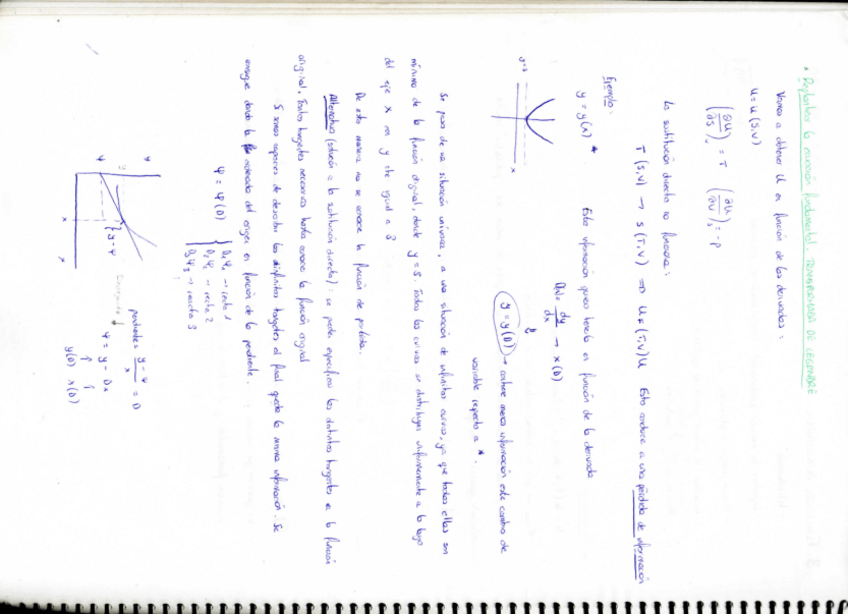 • Replantear la ecuación fundamental. TRANSFORMADA DE LEGENDRE
Vamos a obtener U en función de las derivadas:
U = U (S,V)
(∂U/∂S)ᵥ = T (∂U/∂V)ₛ = -P
La sustitución directa no funciona:
T (S,V) → S (T,V) ⇒ U = (T,V) U Esto conduce a una pérdida de información
Ejemplo:
y = y(x) * Esta información quiero tenerla en función de la derivada
D(x) = dy/dx → x(D)
y = y(D) → contiene menos información este cambio de
variable respecto a *.
y=5
x
Se pasa de una situación unívoca, a una situación de infinitas curvas, ya que todas ellas son
mínimo de la función original, donde y = 5. Todas las curvas se distribuyen uniformemente a lo largo
del eje x con y igual a 5
De esta manera no se conoce la función de partida.
Alternativa (solución a la sustitución directa): se puede especificar las distintas tangentes a la función
original. Tantas tangentes necesarias hasta conocer la función original
Si somos capaces de describir las infinitas tangentes al final queda la misma información. Se
consigue dando la ordenada del origen en función de la pendiente.
ψ = ψ (D) { D₁ψ₁ → recta 1
D₂ψ₂ → recta 2
D₃ψ₃ → recta 3
ψ
y - ψ
x
pendiente = (y - ψ)/x = D
ψ = y - Dx
↑ ↑
y(D) x(D)